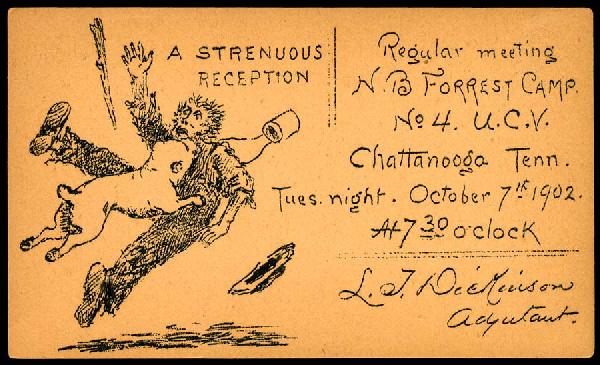 A STRENUOUS
RECEPTION
Regular meeting
N. B FORREST CAMP.
No 4. U.C.V.
Chattanooga Tenn.
Tues. night. October 7th 1902.
At 7 30 o'clock
L. T. Dickinson
Adjutant.